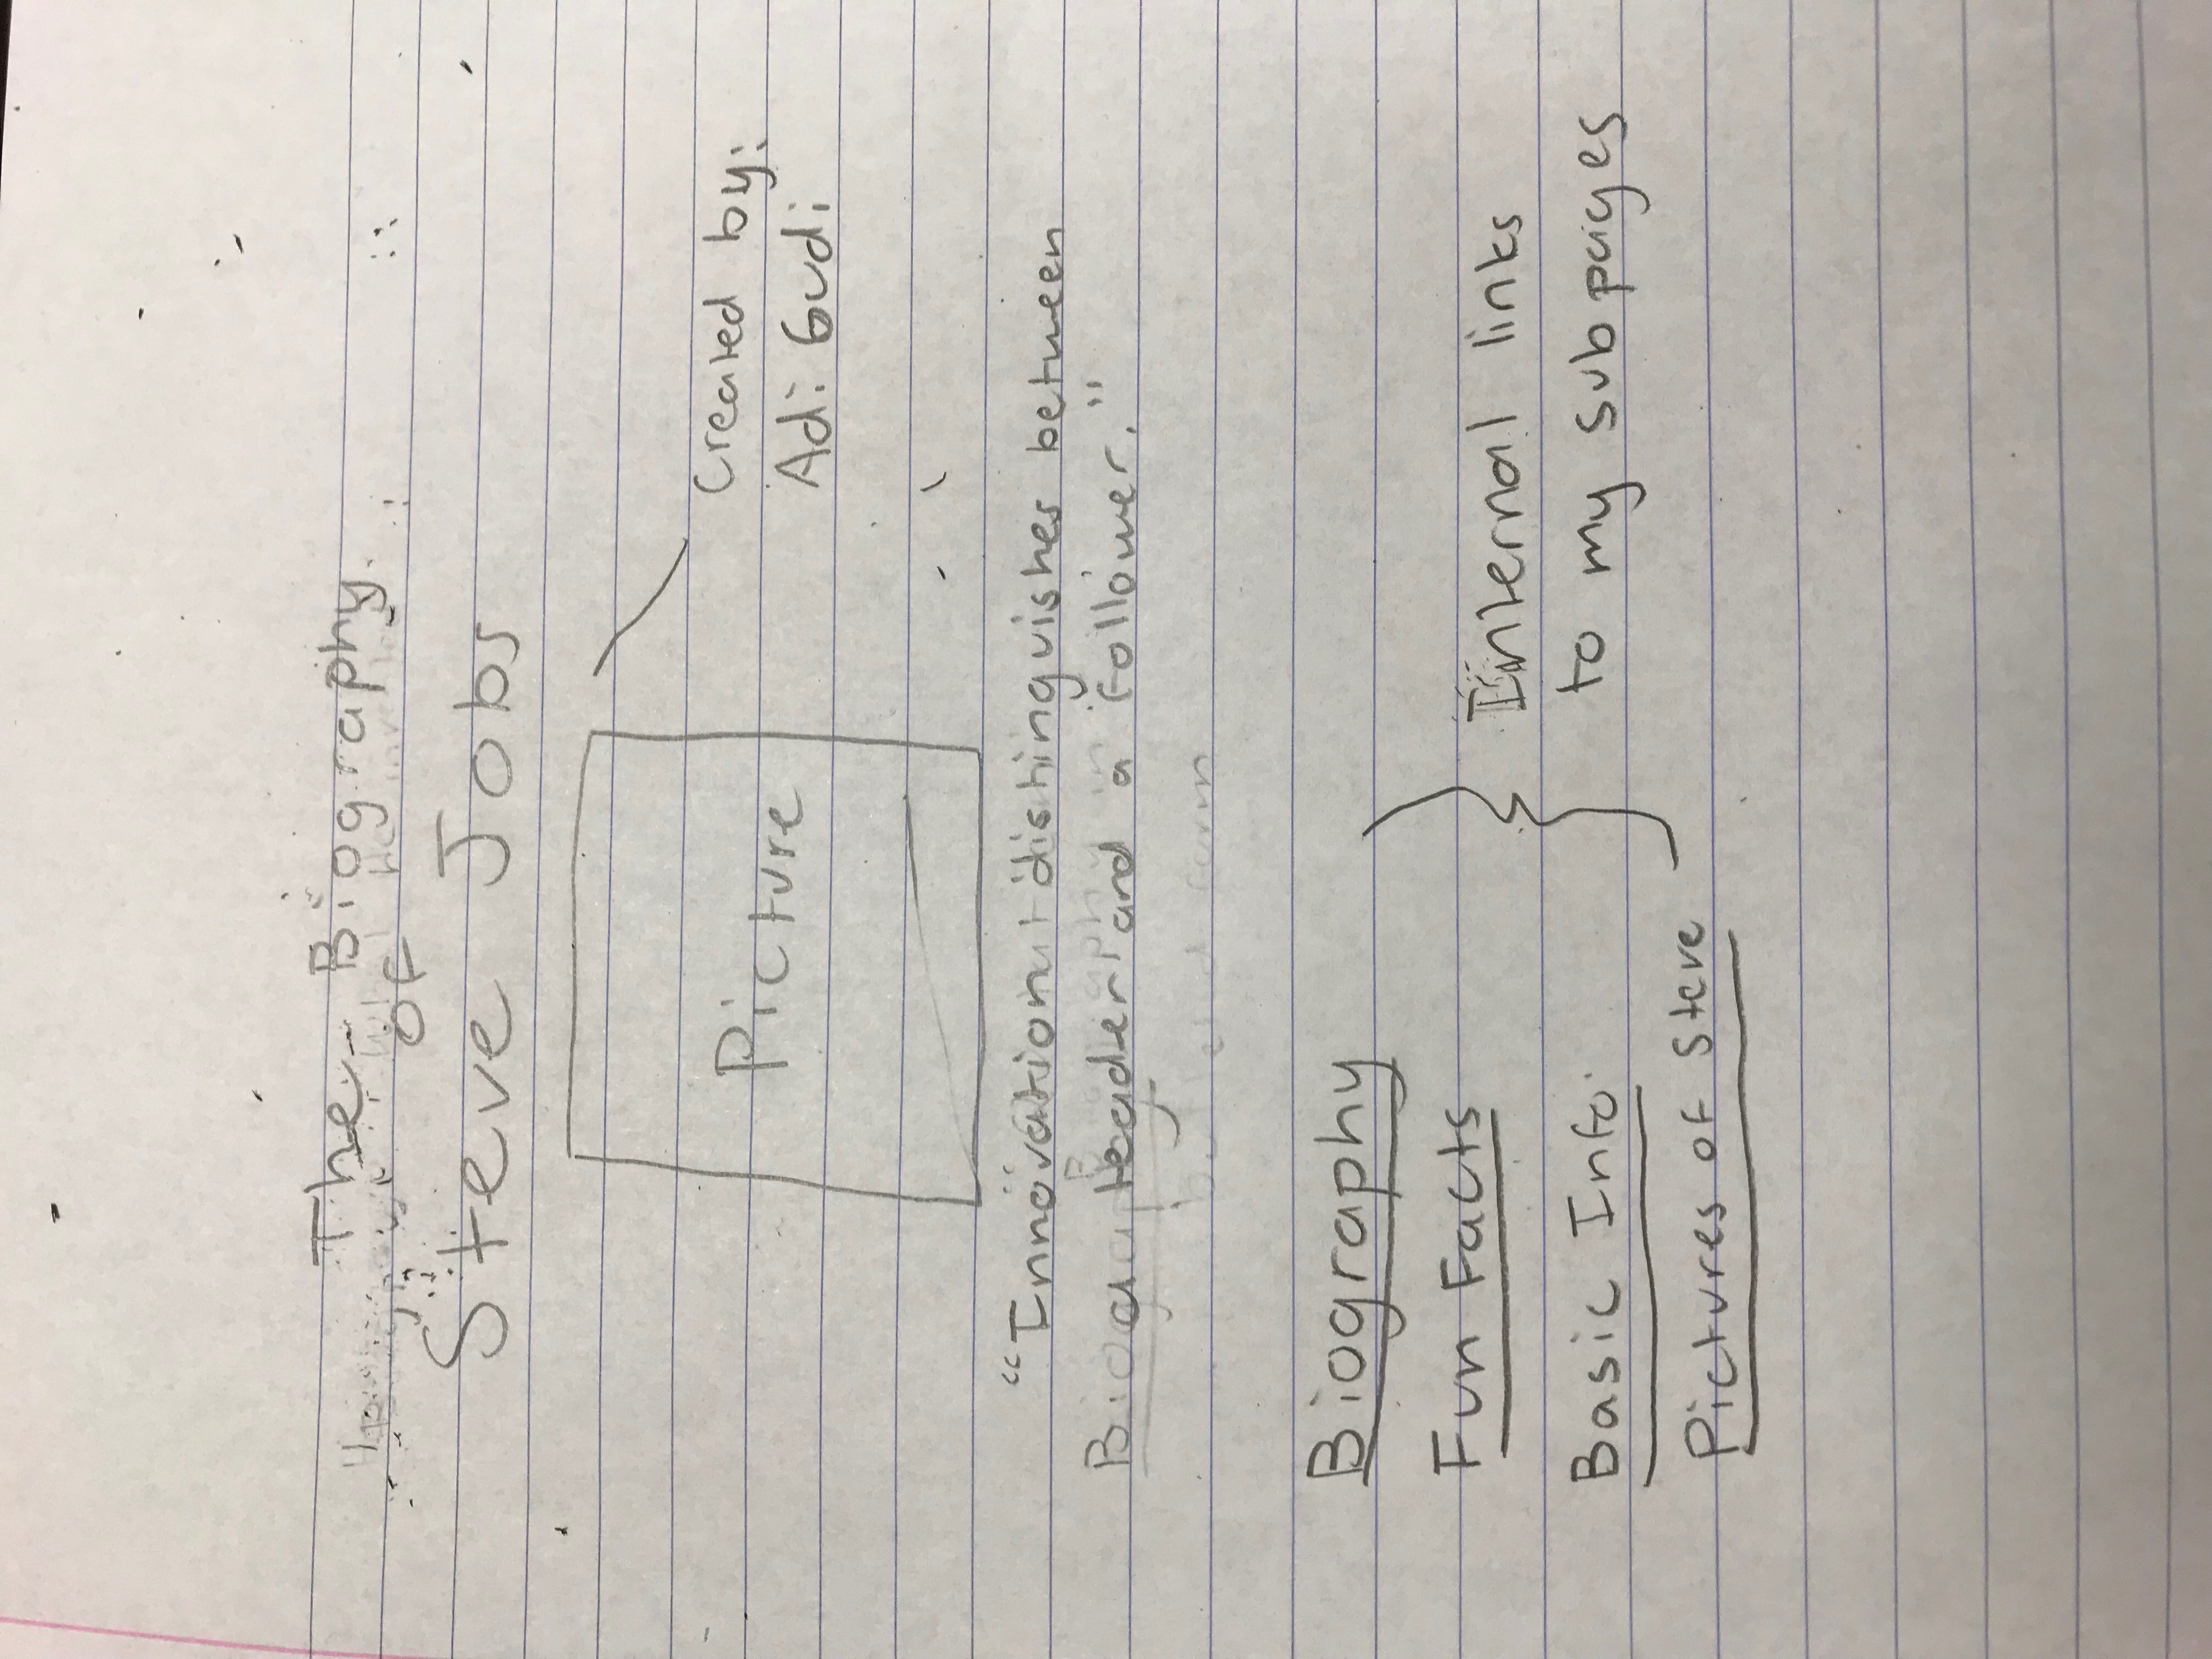 The Biography
of
Steve Jobs
Picture
Created by:
Adi Gudi
"Innovation distinguishes between
a leader and a follower."
Biography
bulleted form
Biography
Fun Facts
Basic Info
Pictures of Steve
Internal links
to my subpages